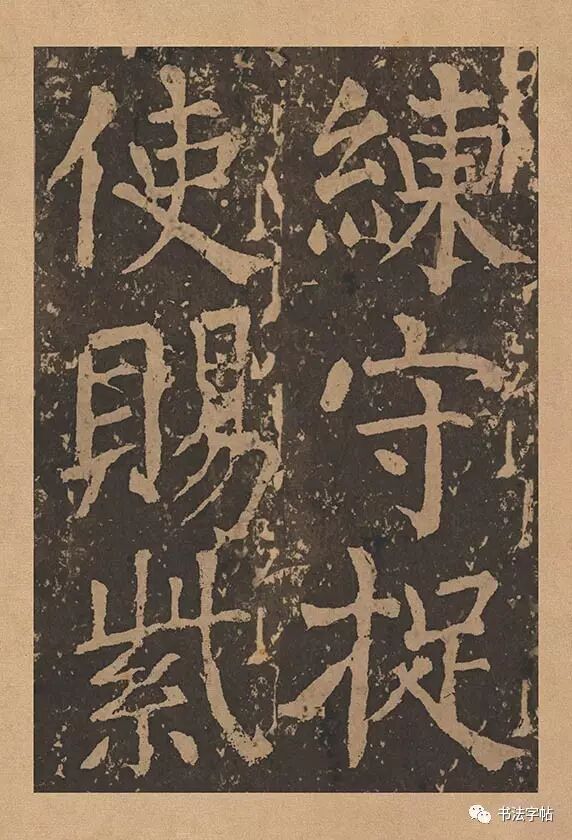 練守捉
使賜紫
书法字帖